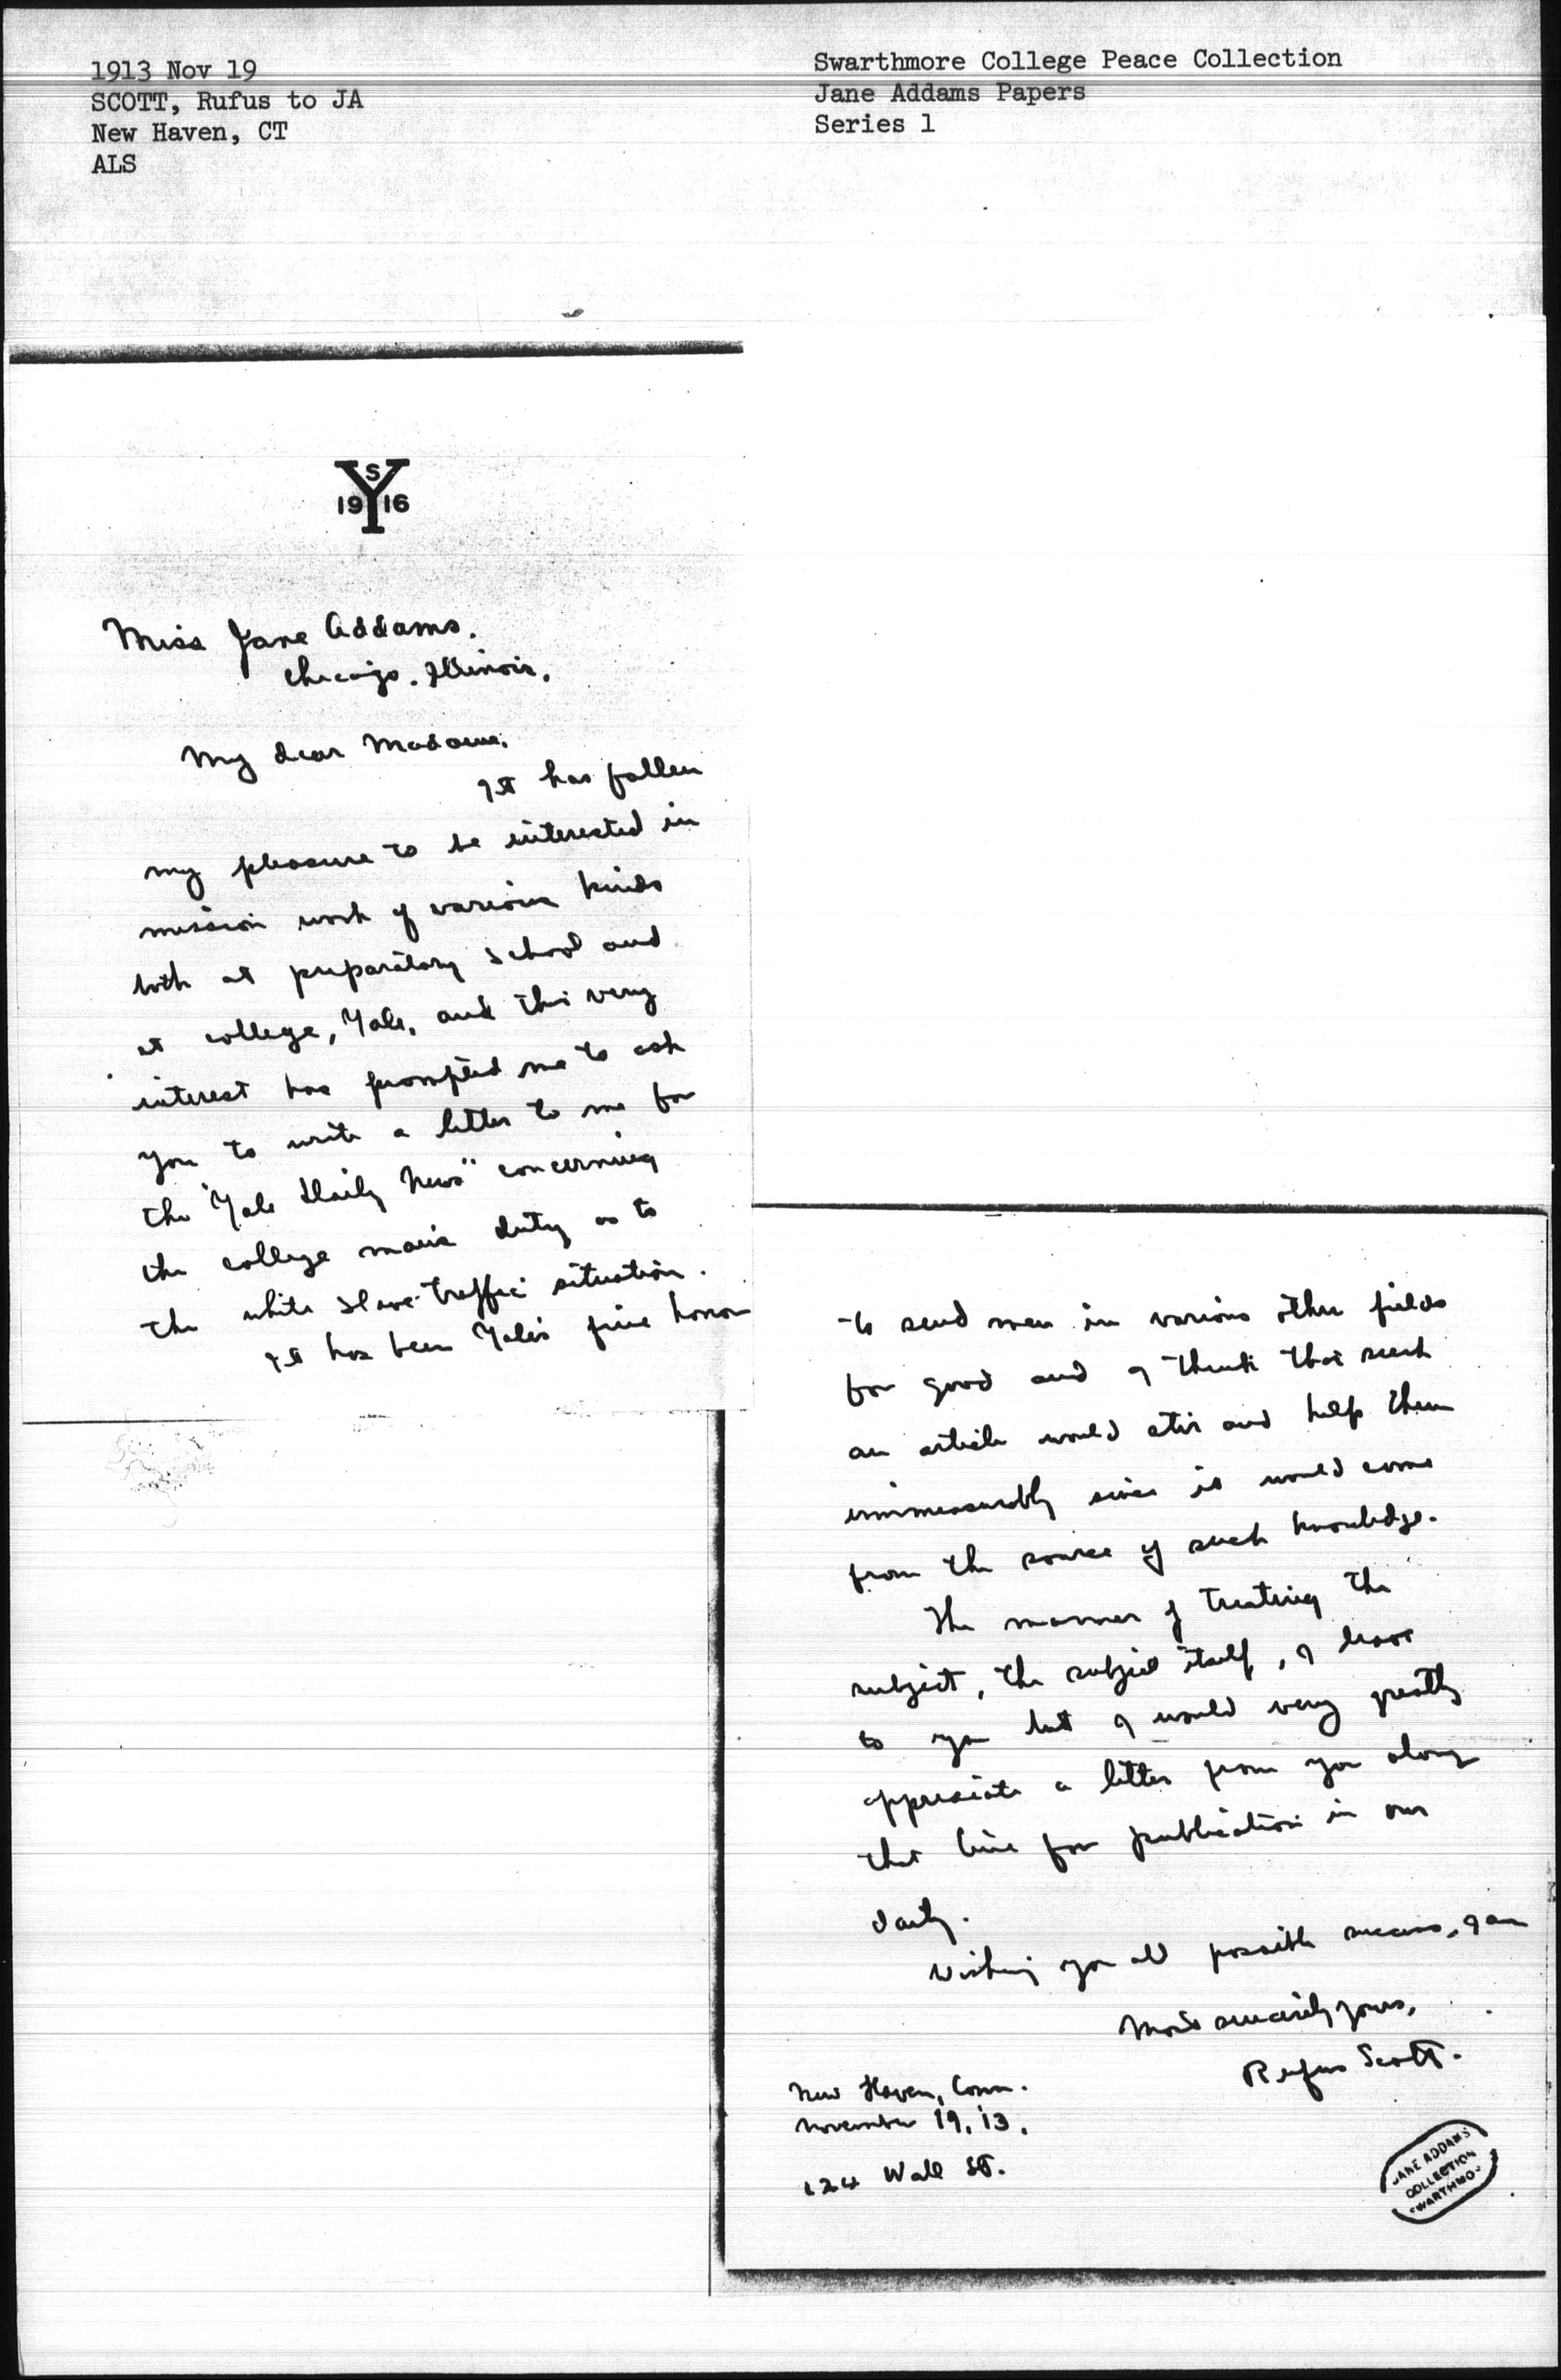 1913 Nov 19
SCOTT, Rufus to JA
New Haven, CT
ALS
Swarthmore College Peace Collection
Jane Addams Papers
Series 1
S
Y
19 16
Miss Jane Addams.
Chicago. Illinois.
My dear Madame.
It has fallen
my pleasure to be interested in
mission work of various kinds
both at preparatory school and
at college, Yale, and this very
interest has prompted me to ask
you to write a letter to me for
the "Yale Daily News" concerning
the college man's duty as to
the white slave traffic situation.
It has been Yale's fine honor
to send men in various other fields
for good and I think that such
an article would stir and help them
immeasurably since it would come
from the source of such knowledge.
The manner of treating the
subject, the subject itself, I leave
to you but I would very greatly
appreciate a letter from you along
that line for publication in our
daily.
Wishing you all possible success, I am
Most sincerely yours,
Rufus Scott.
New Haven, Conn.
November 19, '13.
124 Wall St.
JANE ADDAMS
COLLECTION
SWARTHMO